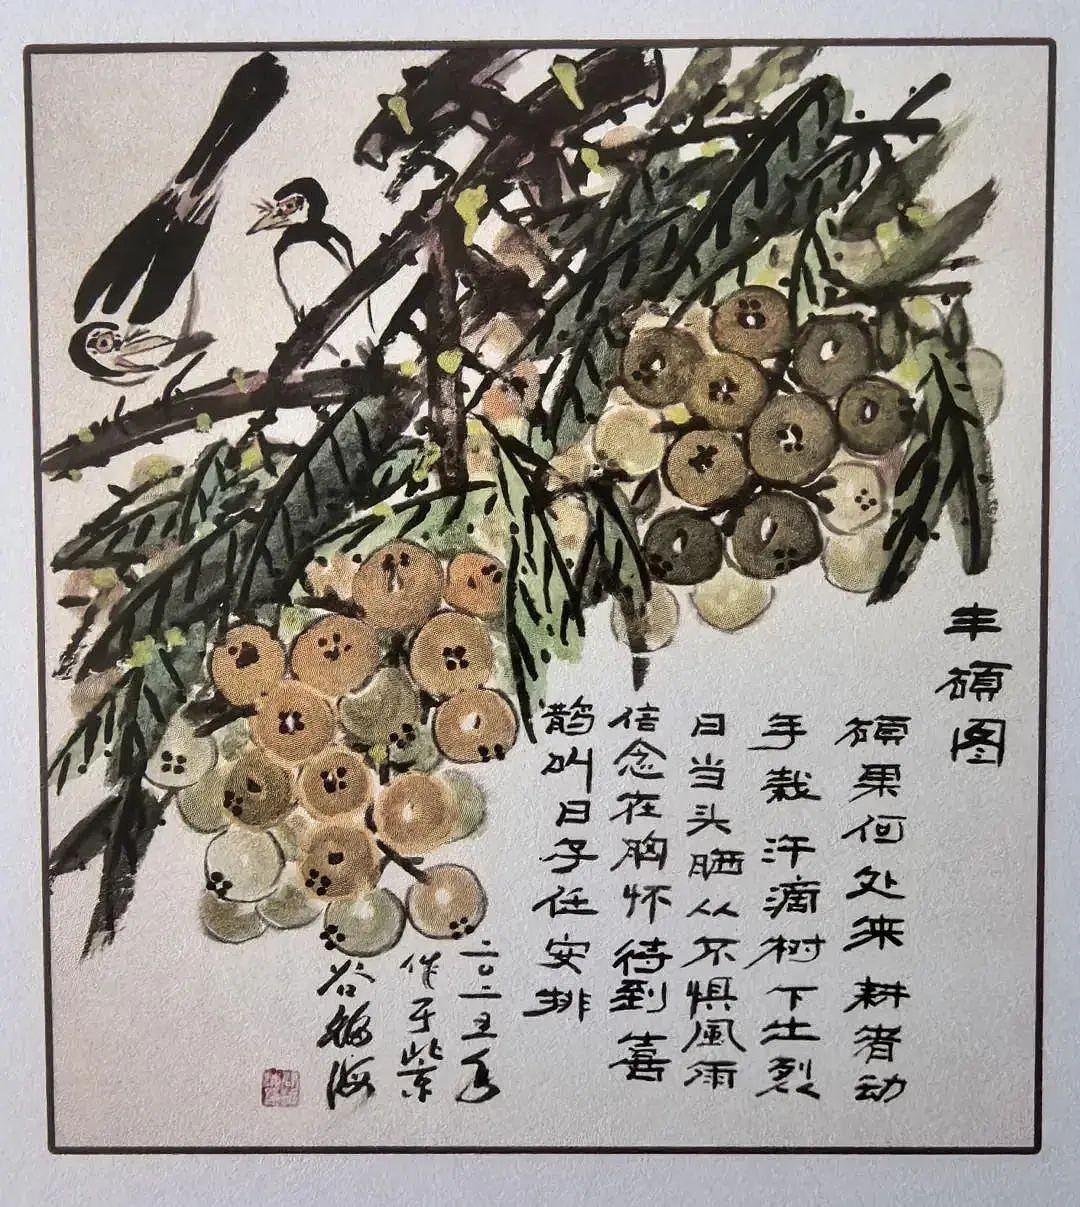 丰碩图
碩果何处来 耕者动
手栽 汗滴树下土裂
日当头晒从不惧風雨
信念在胸怀 待到喜
鹊叫日子任安排
二〇一五年
作于紫
谷海